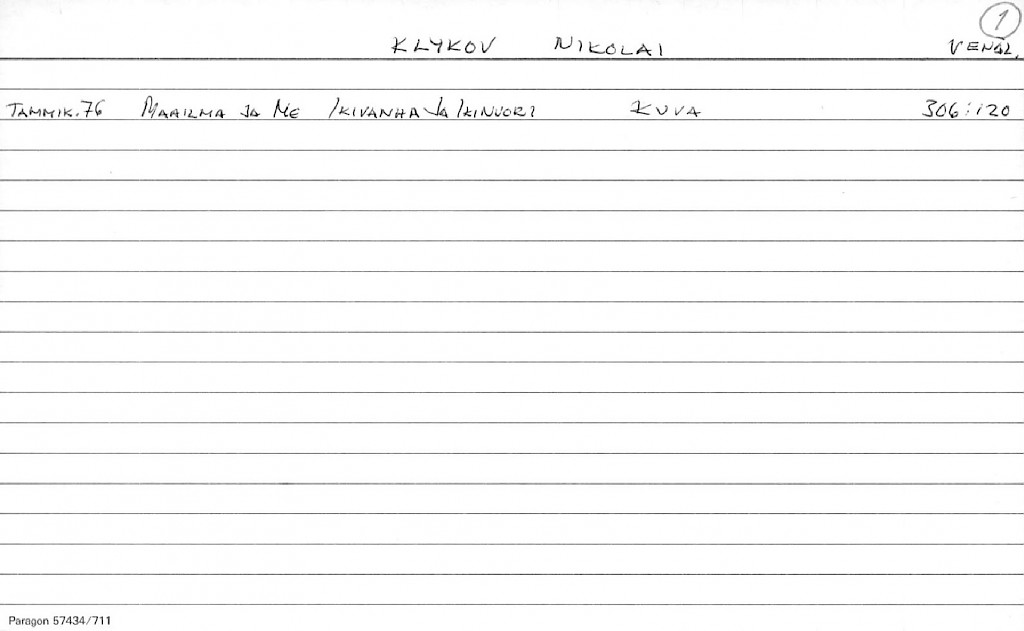 1
KLYKOV NIKOLAI VENÄL.
TAMMIK.76 MAAILMA JA ME IKIVANHA JA IKINUORI KUVA 306:120
Paragon 57434/711